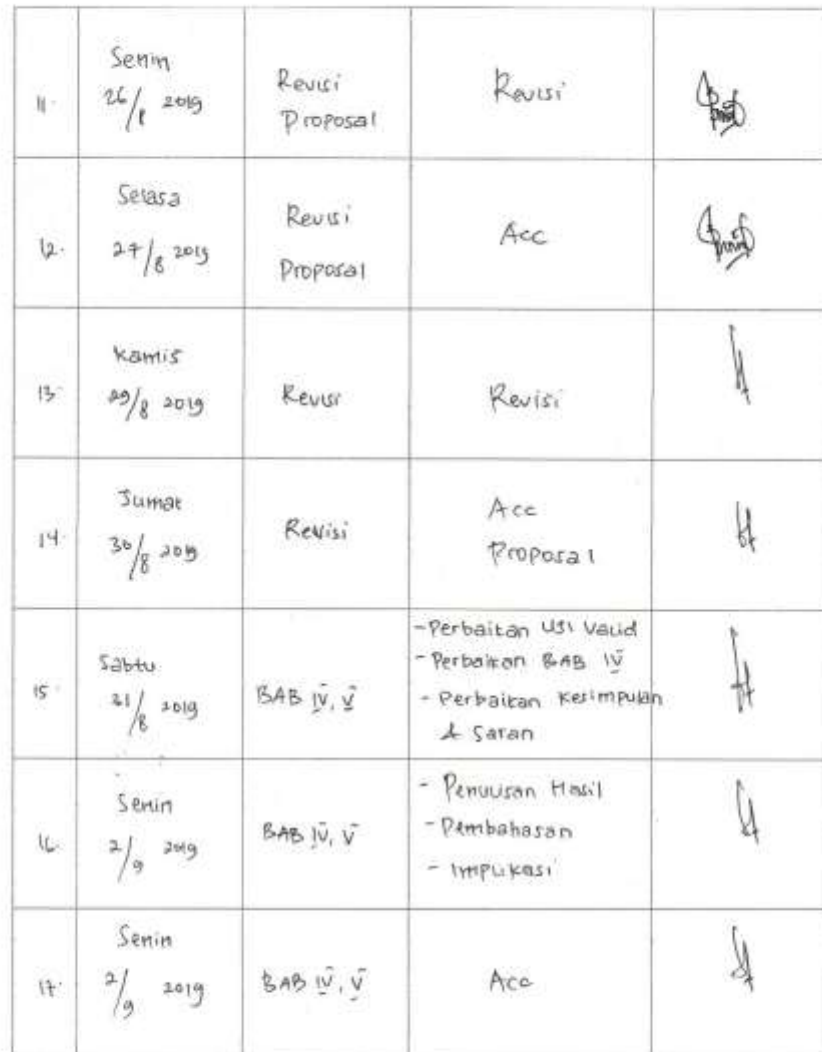 11.
Senin
26/8 2019
Revisi
Proposal
Revisi
12.
Selasa
27/8 2019
Revisi
Proposal
Acc
13.
Kamis
29/8 2019
Revisi
Revisi
14.
Jumat
30/8 2019
Revisi
Acc
Proposal
15.
Sabtu
31/8 2019
BAB IV, V
- Perbaikan Uji Valid
- Perbaikan BAB IV
- Perbaikan Kesimpulan
& Saran
16.
Senin
2/9 2019
BAB IV, V
- Penulisan Hasil
- Pembahasan
- Implikasi
17.
Senin
2/9 2019
BAB IV, V
Acc